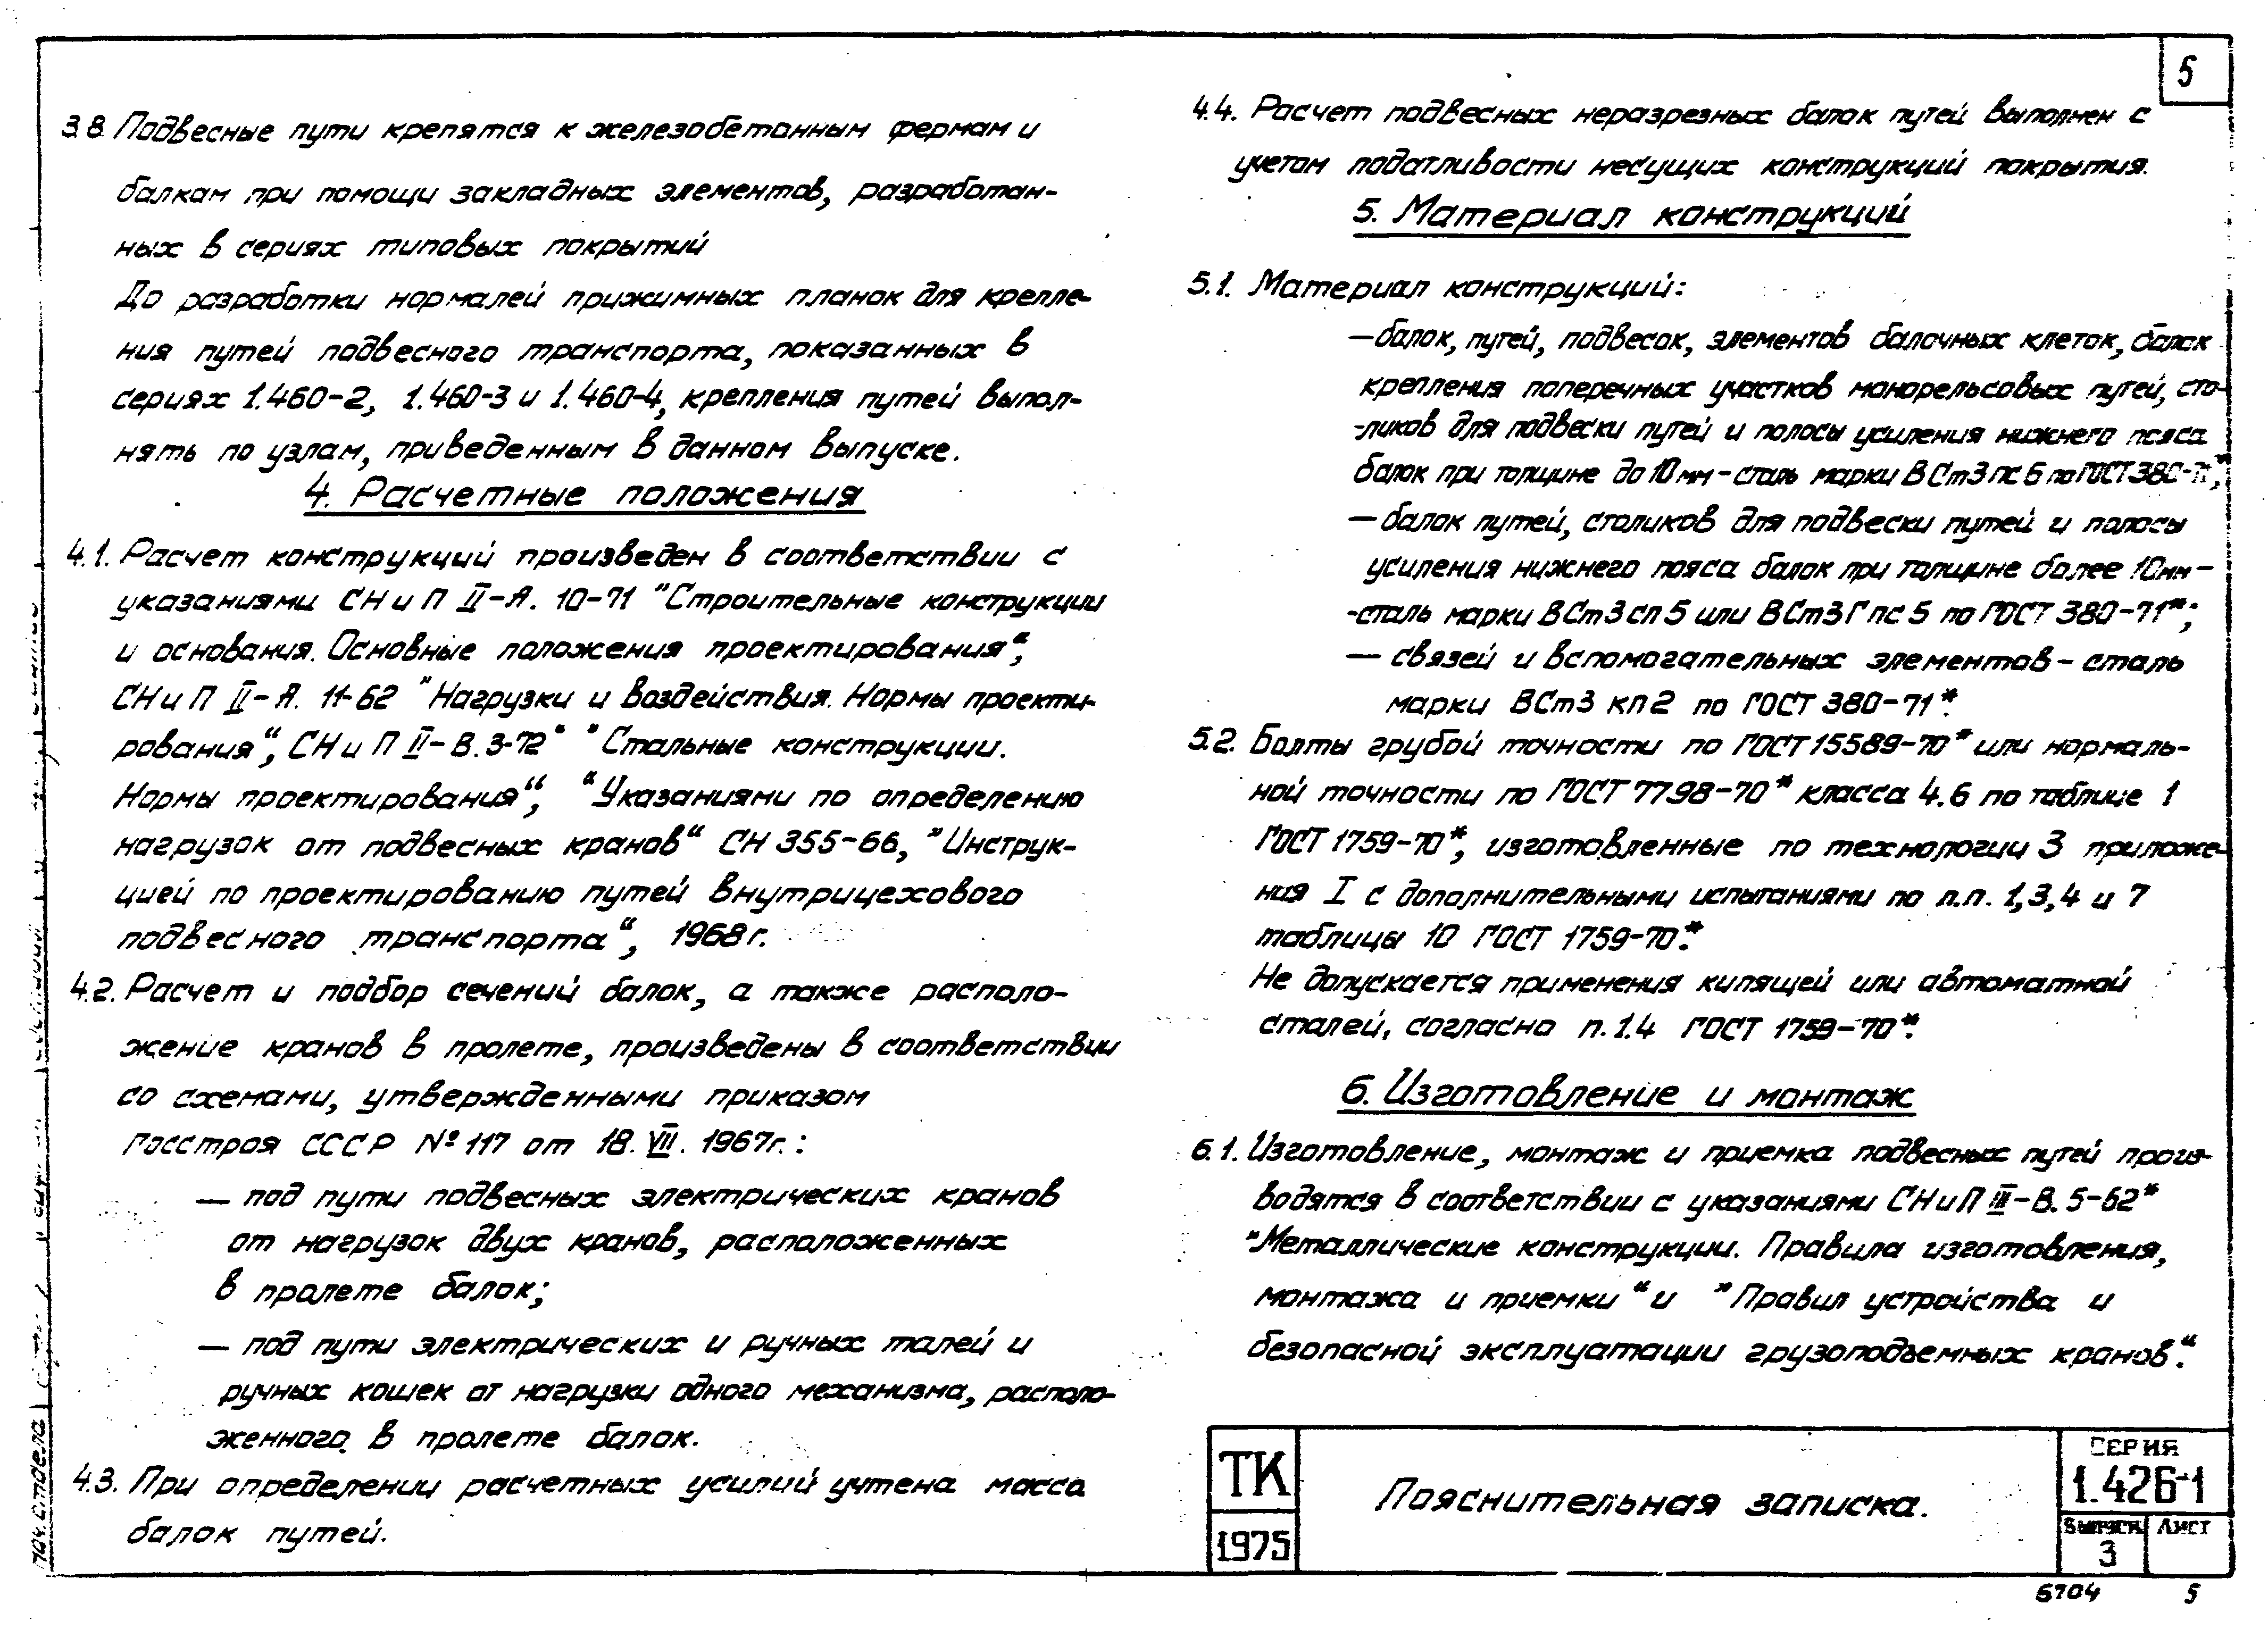 5
3.8. Подвесные пути крепятся к железобетонным фермам и
балкам при помощи закладных элементов, разработан-
ных в сериях типовых покрытий
До разработки нормалей прижимных планок для крепле-
ния путей подвесного транспорта, показанных в
сериях 1.460-2, 1.460-3 и 1.460-4, крепления путей выпол-
нять по узлам, приведенным в данном выпуске.
4. Расчетные положения
4.1. Расчет конструкций произведен в соответствии с
указаниями СНиП II-А. 10-71 "Строительные конструкции
и основания. Основные положения проектирования",
СНиП II-А. 11-62 "Нагрузки и воздействия. Нормы проекти-
рования", СНиП II-В. 3-72* "Стальные конструкции.
Нормы проектирования", "Указаниями по определению
нагрузок от подвесных кранов" СН 355-66, "Инструк-
цией по проектированию путей внутрицехового
подвесного транспорта", 1968г.
4.2. Расчет и подбор сечений балок, а также располо-
жение кранов в пролете, произведены в соответствии
со схемами, утвержденными приказом
Госстроя СССР № 117 от 18. VII. 1967г.:
— под пути подвесных электрических кранов
от нагрузок двух кранов, расположенных
в пролете балок;
— под пути электрических и ручных талей и
ручных кошек от нагрузки одного механизма, располо-
женного в пролете балок.
4.3. При определении расчетных усилий учтена масса
балок путей.
4.4. Расчет подвесных неразрезных балок путей выполнен с
учетом податливости несущих конструкций покрытия.
5. Материал конструкций
5.1. Материал конструкций:
— балок, путей, подвесок, элементов балочных клеток, балок
крепления поперечных участков монорельсовых путей, сто-
-ликов для подвески путей и полосы усиления нижнего пояса
балок при толщине до 10мм - сталь марки ВСт3пс6 по ГОСТ 380-71*;
— балок путей, столиков для подвески путей и полосы
усиления нижнего пояса балок при толщине более 10мм -
-сталь марки ВСт3сп5 или ВСт3Гпс5 по ГОСТ 380-71*;
— связей и вспомогательных элементов - сталь
марки ВСт3кп2 по ГОСТ 380-71*.
5.2. Болты грубой точности по ГОСТ 15589-70* или нормаль-
ной точности по ГОСТ 7798-70* класса 4.6 по таблице 1
ГОСТ 1759-70*, изготовленные по технологии 3 приложе-
ния I с дополнительными испытаниями по п.п. 1,3,4 и 7
таблицы 10 ГОСТ 1759-70*.
Не допускается применения кипящей или автоматной
сталей, согласно п.1.4 ГОСТ 1759-70*.
6. Изготовление и монтаж
6.1. Изготовление, монтаж и приемка подвесных путей произ-
водятся в соответствии с указаниями СНиП III-В. 5-62*
"Металлические конструкции. Правила изготовления,
монтажа и приемки" и "Правил устройства и
безопасной эксплуатации грузоподъемных кранов."
ТК
1975
Пояснительная записка.
СЕРИЯ
1.426-1
Выпуск Лист
3
6704 5
Нач. отдела